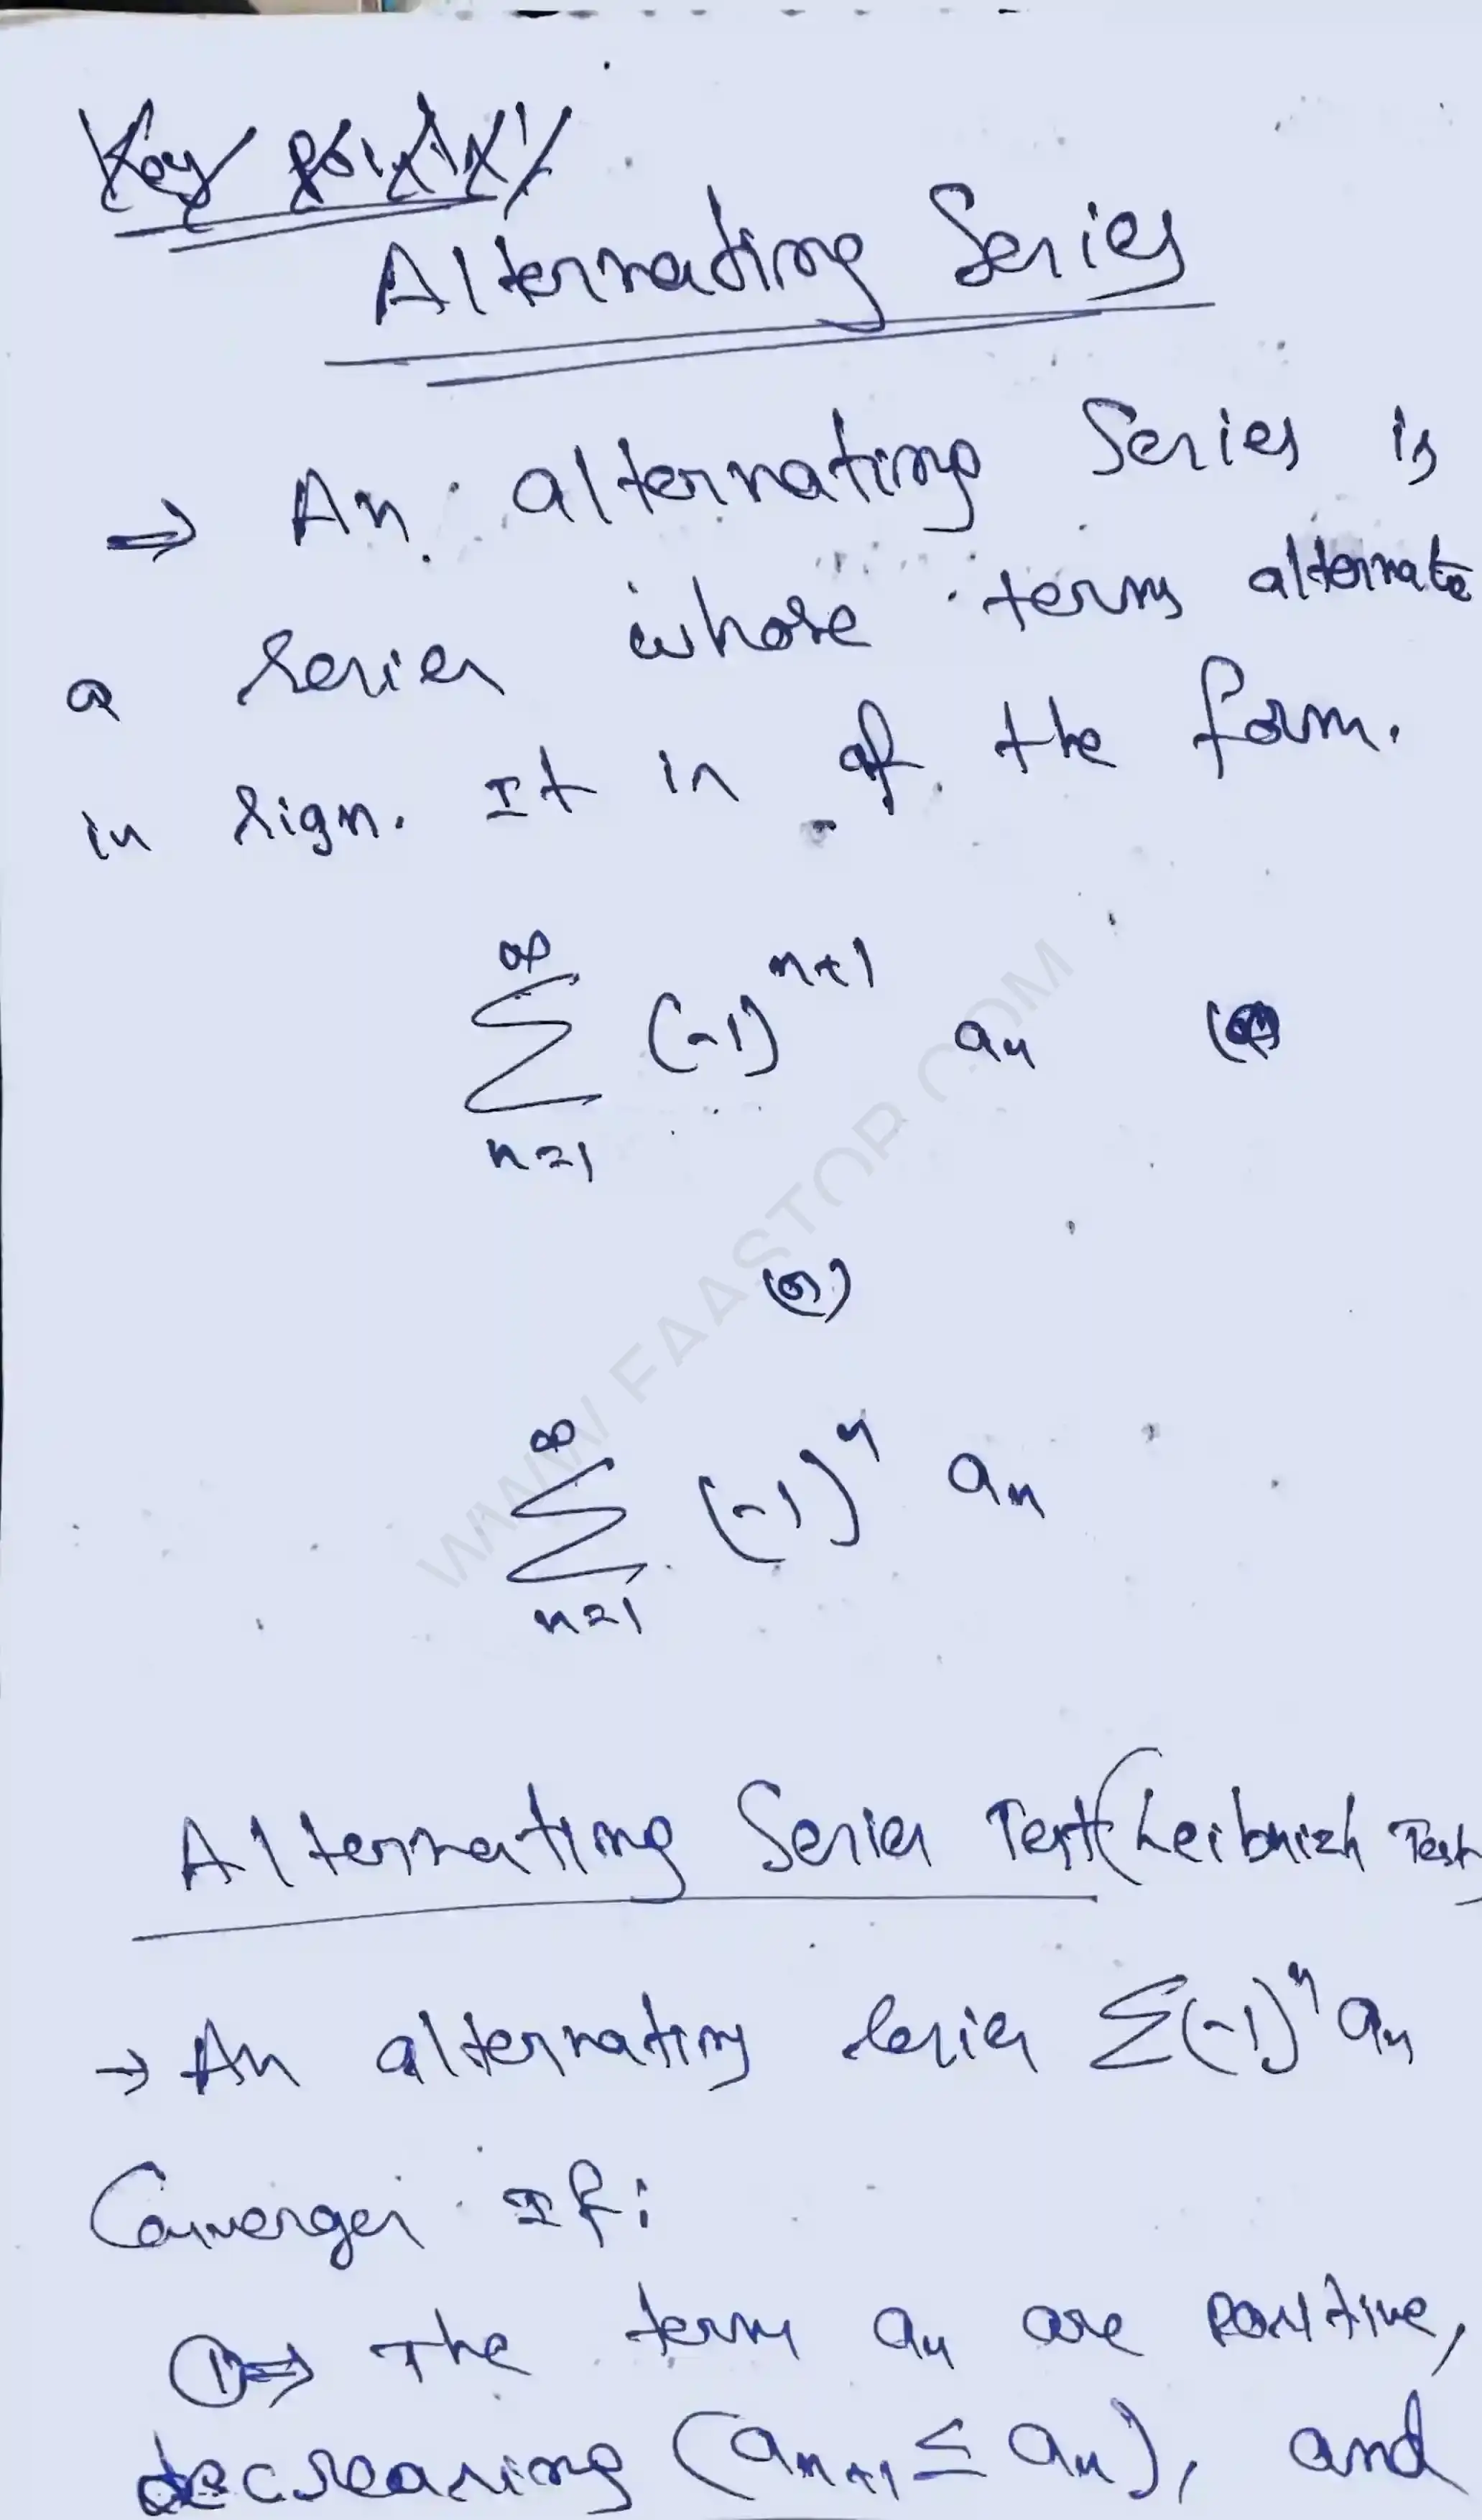 Key points
Alternating Series
⇒ An alternating Series is
a series whose terms alternate
in sign. It is of the form.
∞
∑ (-1)^{n+1} a_n
n=1
(or)
∞
∑ (-1)^n a_n
n=1
WWW.FAASTOP.COM
Alternating Series Test (Leibnizh Test)
→ An alternating series ∑(-1)^n a_n
Converges If:
①⇒ The terms a_n are positive,
decreasing (a_{n+1} ≤ a_n), and